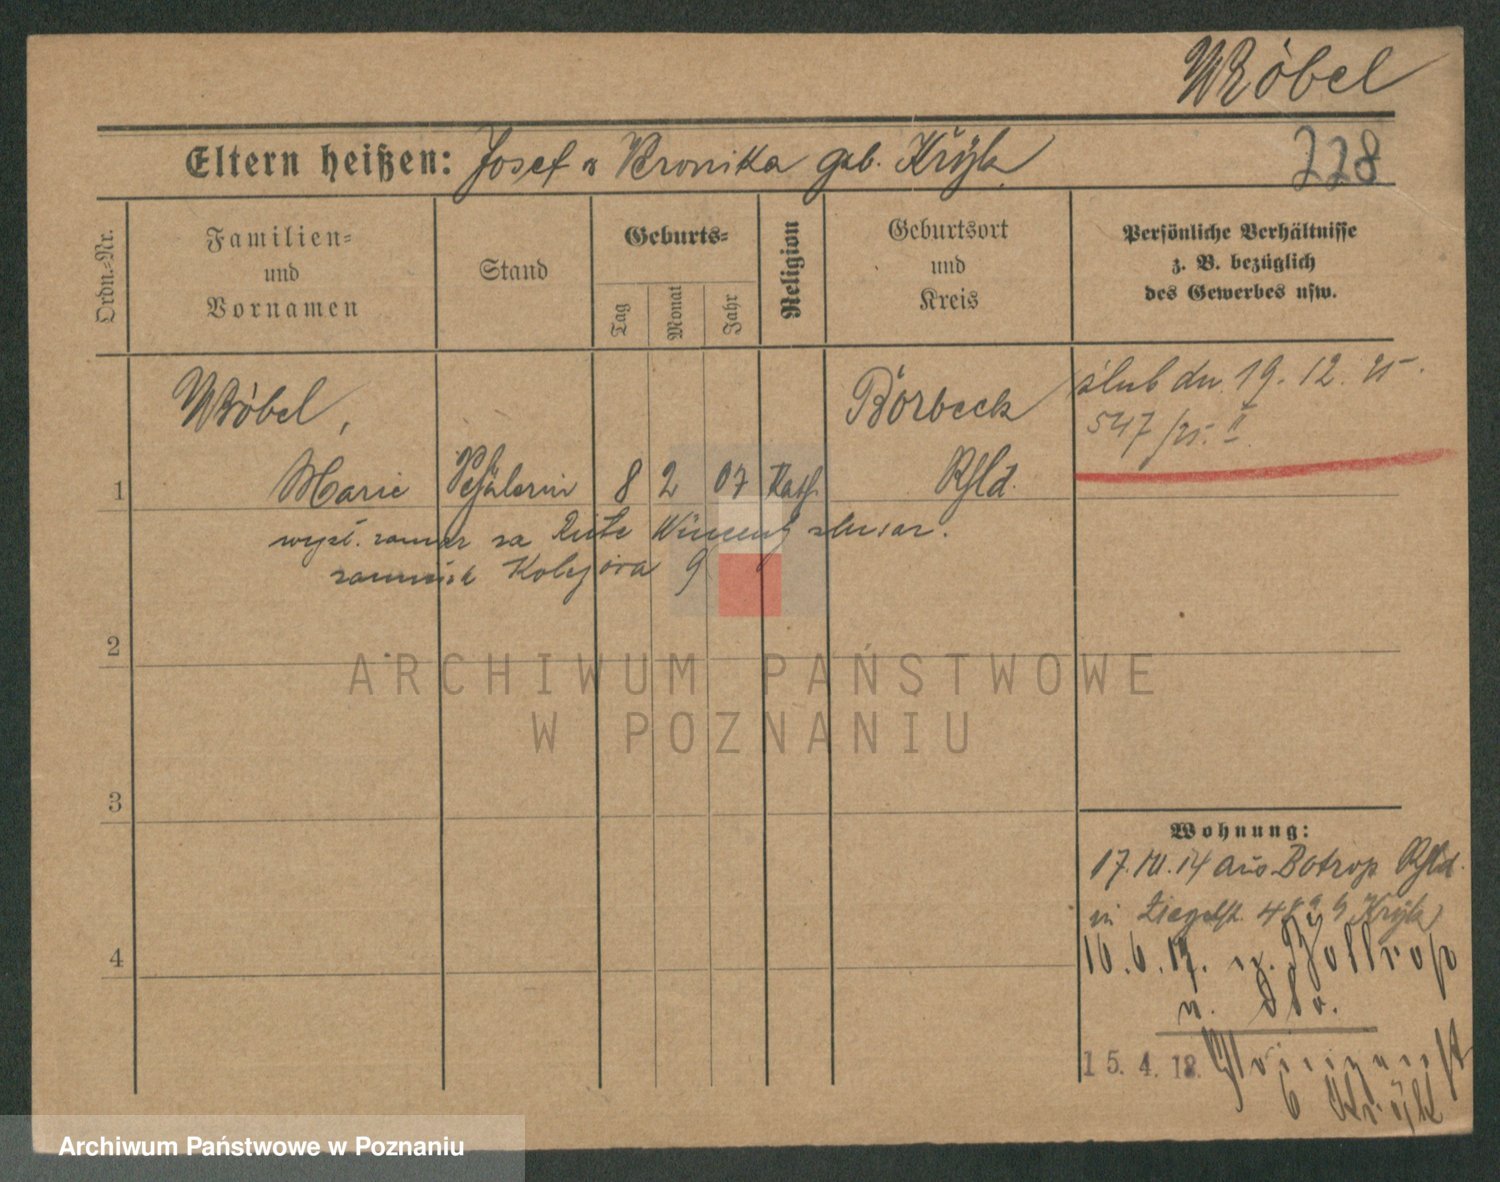 Wróbel
Eltern heißen: Josef u Veronika geb. Kryk
228
Ordn.-Nr.
Familien-
und
Vornamen
Stand
Geburts-
Tag
Monat
Jahr
Religion
Geburtsort
und
Kreis
Persönliche Verhältnisse
z. B. bezüglich
des Gewerbes usw.
Wróbel,
Börbeck
ślub dn. 19. 12. 25.
547/25. II
1
Marie
Schülerin
8
2
07
Kath.
Rhld.
za Wincenty ślusarz.
Kolejowa 9
2
ARCHIWUM PAŃSTWOWE
W POZNANIU
3
Wohnung:
17. 14 aus Botrop Rhld.
in Ziegelstr. Kryk
4
16. 6. 17. Bottrop
15. 4. 18.
6
Archiwum Państwowe w Poznaniu